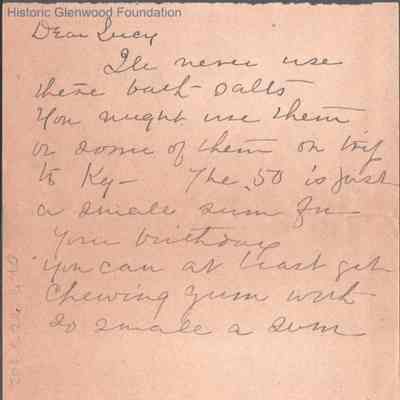 Historic Glenwood Foundation
Dear Lucy
Ile never use
these bath salts
You might use them
or some of them on trip
to Ky - The .50 is just
a small sum for
your birthday
you can at least get
chewing gum with
so small a sum